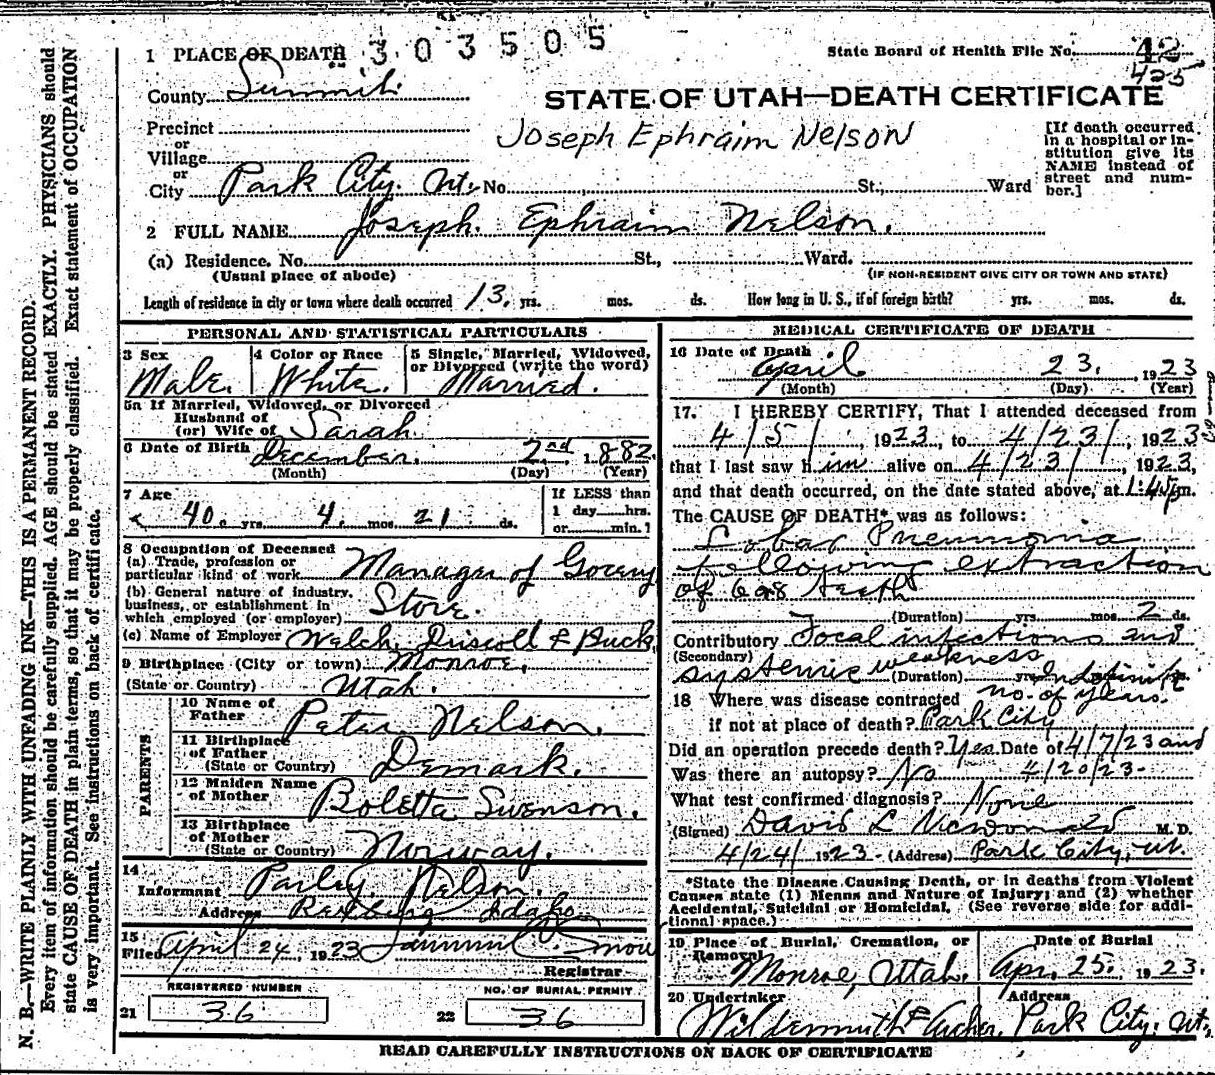 1 PLACE OF DEATH 303505
State Board of Health File No. 42
425
County Summit
STATE OF UTAH—DEATH CERTIFICATE
Precinct
or
Village
or
City Park City. Ut. No. St., Ward
Joseph Ephraim Nelson
[If death occurred
in a hospital or in-
stitution give its
NAME instead of
street and num-
ber.]
2 FULL NAME Joseph. Ephraim Nelson.
(a) Residence. No. St., Ward.
(Usual place of abode)
(IF NON-RESIDENT GIVE CITY OR TOWN AND STATE)
Length of residence in city or town where death occurred 13. yrs. mos. ds. How long in U. S., if of foreign birth? yrs. mos. ds.
PERSONAL AND STATISTICAL PARTICULARS
3 Sex
Male.
4 Color or Race
White.
5 Single, Married, Widowed,
or Divorced (write the word)
Married.
5a If Married, Widowed, or Divorced
Husband of
(or) Wife of Sarah
6 Date of Birth December. 2nd 1882.
(Month) (Day) (Year)
7 Age
40. yrs. 4. mos. 21. ds.
If LESS than
1 day hrs.
or min. 1
8 Occupation of Deceased
(a) Trade, profession or
particular kind of work Manager of Grocery
(b) General nature of industry,
business, or establishment in
which employed (or employer) Store.
(c) Name of Employer Welch, Driscoll & Buck
9 Birthplace (City or town) Monroe.
(State or Country) Utah.
PARENTS
10 Name of
Father Peter Nelson.
11 Birthplace
of Father
(State or Country) Demark.
12 Maiden Name
of Mother Boletta Swenson.
13 Birthplace
of Mother
(State or Country) Norway.
14
Informant Parley Nelson.
Address Rexburg Idaho
15
Filed April 24, 1923 Snow
Registrar
REGISTERED NUMBER
21 36
NO. OF BURIAL PERMIT
22 36
MEDICAL CERTIFICATE OF DEATH
16 Date of Death
April 23. 1923
(Month) (Day) (Year)
17. I HEREBY CERTIFY, That I attended deceased from
4/5/, 1923, to 4/23/, 1923
that I last saw him alive on 4/23/, 1923,
and that death occurred, on the date stated above, at 1:45 pm.
The CAUSE OF DEATH* was as follows:
Lobar Pneumonia
following extraction
of 6 or 8 teeth
(Duration) yrs. mos. 2 ds.
Contributory Focal infections and
(Secondary)
systemic weakness
(Duration) yrs. Indefinite
no. of years.
18 Where was disease contracted
if not at place of death? Park City
Did an operation precede death? Yes Date of 4/7/23 and
4/20/23
Was there an autopsy? No
What test confirmed diagnosis? None
(Signed) David L McDonald M. D.
4/24/ 1923 (Address) Park City, Ut.
*State the Disease Causing Death, or in deaths from Violent
Causes state (1) Means and Nature of Injury; and (2) whether
Accidental, Suicidal or Homicidal. (See reverse side for addi-
tional space.)
19 Place of Burial, Cremation, or
Removal
Monroe, Utah.
Date of Burial
Apr. 25. 1923.
20 Undertaker Address
Wildermuth & Archer. Park City. Ut.
READ CAREFULLY INSTRUCTIONS ON BACK OF CERTIFICATE
N. B.—WRITE PLAINLY WITH UNFADING INK—THIS IS A PERMANENT RECORD.
Every item of information should be carefully supplied. AGE should be stated EXACTLY. PHYSICIANS should
state CAUSE OF DEATH in plain terms, so that it may be properly classified. Exact statement of OCCUPATION
is very important. See instructions on back of certificate.